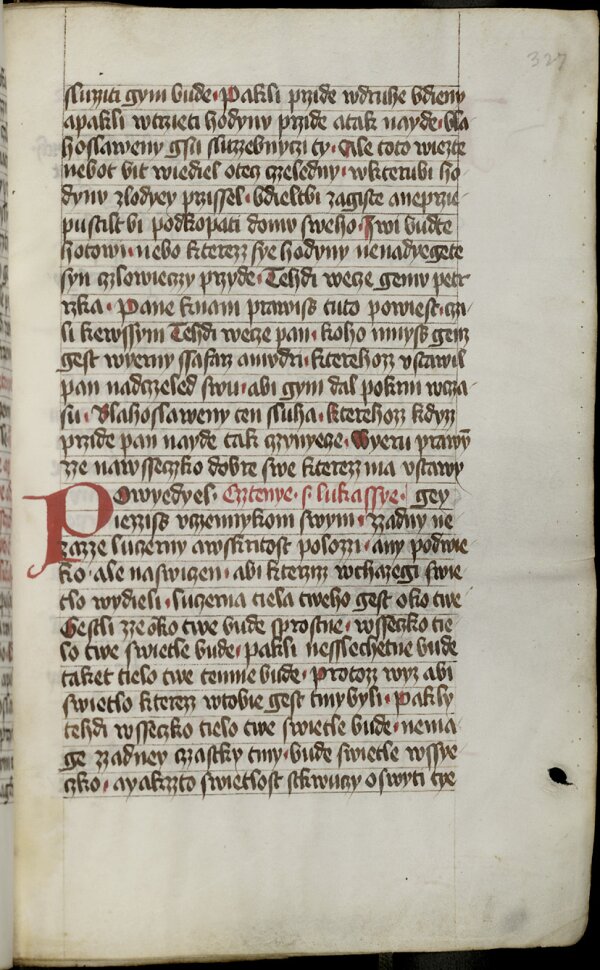 327
sluziti gym bude · Pakli przide wdruhe bdieny
apakli wtrzieti hodyny przide atak nayde · bla
hoslaweny gsu sluzebnyczi ty · Ale toto wiezte
nebot bit wiediel otecz czeledny · wkterubi ho
dynu zlodyey przissel · bdieltbi zagiste aneprzie
pustilt bi podkopati domu sweho · I wi budte
hotowi · nebo kterezz sye hodyny nenadyegete
syn czlowieczy przyde · Tehdi wecze gemu petr
rzka · Pane knam prawiss tuto powiest · czi
li kewssym Tehdi wecze pan · koho mnyss genz
gest wyerny ssafarz amudri · kterehozz vstawil
pan nadczeled swu · abi gym dal pokrm wcza
su · Blahoslaweny ten sluha · kterehozz kdyzz
przide pan nayde tak czynyecze · Wyeru prawy
zze nawsseczko dobre swe kterezz ma vstawy
Powyedyel · Cztenye · s · lukassye · gey
Piezziss vczennykom swym · zzadny ne
zazze lucerny awskritost polozzi · any podwie
ko · ale naswiczen · abi kterzizz wchazegi swie
tlo wydieli · lucerna tiela tweho gest oko twe
Gestli zze oko twe bude sprostne · wsseczko tie
lo twe swietle bude · pakli nesslechetne bude
taket tielo twe temne bude · Protozz wyz abi
swietlo kterezz wtobie gest tmy byli · Pakly
tehdi wsseczko tielo twe swietle bude · nema
ge zzadney czastky tmy · bude swietle wssye
czko · ayakzto swietlost stkwuczy oswyti tye